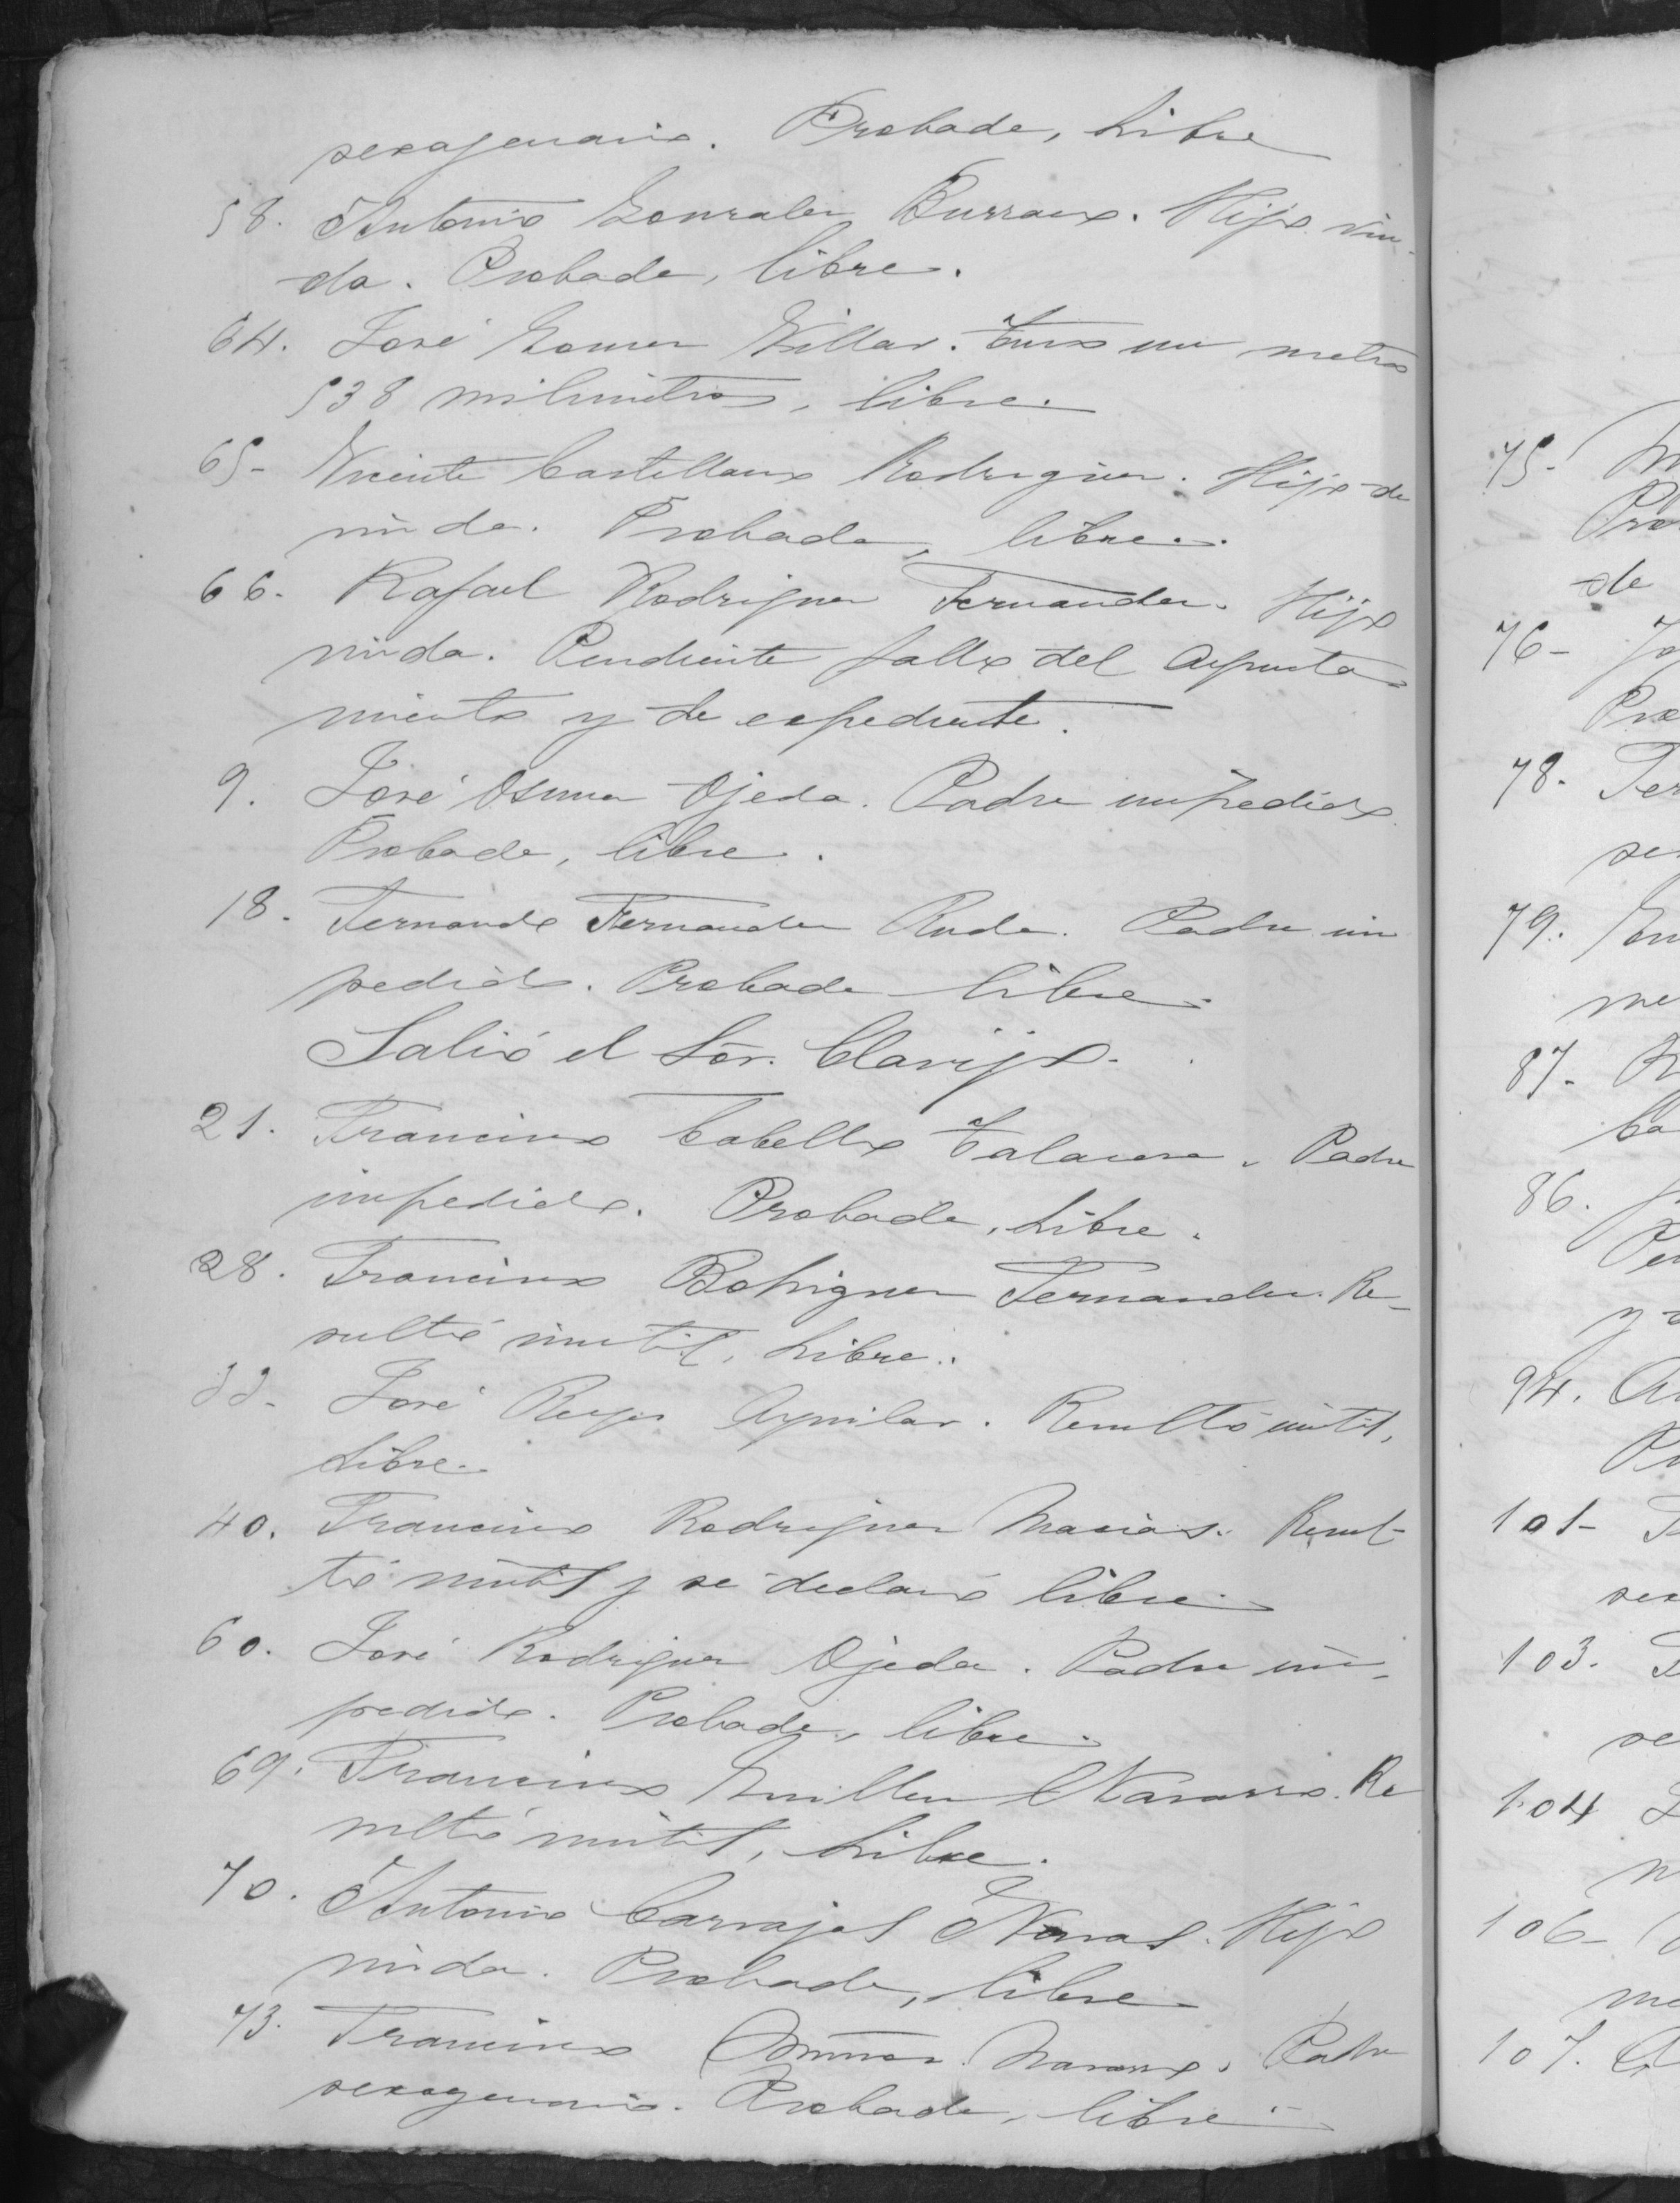 sexagenario. Probada, Libre
58. Antonio Gonzalez Burraco. Hijo viu-
da. Probada, libre.
64. José Gomez Villar. Tuvo un metro
538 milimetros, libre.
65- Vicente Castellano Rodriguez. Hijo de
viuda. Probada, libre.
66. Rafael Rodriguez Fernandez. Hijo
viuda. Pendiente fallo del Ayunta-
miento y de expediente.
9. José Osuna Ojeda. Padre impedido.
Probada, libre.
18. Fernando Fernandez Ruda. Padre im
pedido. Probada libre.
Salió el Sor. Clavijo.
21. Francisco Cabello Talavera. Padre
impedido. Probada, Libre.
28. Francisco Fernandez. Re-
sultó inutil, Libre.
33- José Reyes Aguilar. Resultó inutil,
Libre.
40. Francisco Rodriguez Macias. Resul-
tó inutil y se declaró libre.
60. José Rodriguez Ojeda. Padre im-
pedido. Probada, libre.
69. Francisco Guillen Navarro. Re
sultó inutil, Libre.
70. Antonio Carvajal Navas. Hijo
viuda. Probada, libre.
73. Francisco Muñoz Navarro. Padre
sexagenario. Probada, libre
75-
de
76-
78-
79.
87-
86.
94.
101-
103.
104
106-
107.